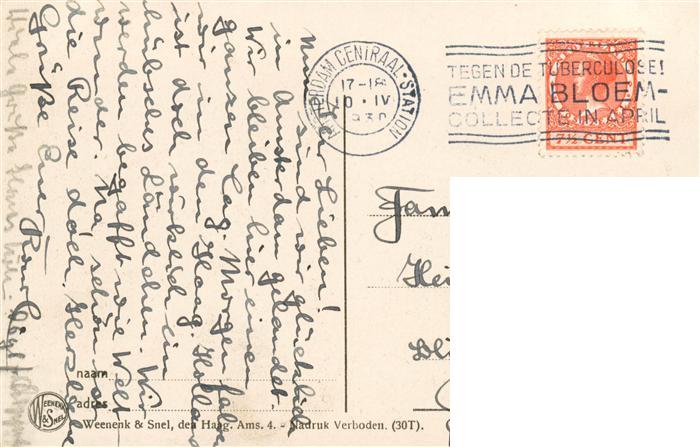 AMSTERDAM CENTRAAL-STATION
17-18
10 · IV
1930
TEGEN DE TUBERCULOSE!
EMMA BLOEM-
COLLECTE IN APRIL
7½ CENT
Lieben!
sind wir glücklich
in Amsterdam gelandet.
Wir bleiben hier einen
ganzen Tag. Morgen fahren
wir in den Haag. Holland
ist doch ein
hübsches Ländchen. Wir
werden begafft wie Welt
wunder. Na, schön
die Reise doch. Herzliche
Grüße Euer
Viele Grüße
Fam
Hei
naam
adres
WEENENK & SNEL
Weenenk & Snel, den Haag. Ams. 4. - Nadruk Verboden. (30T).